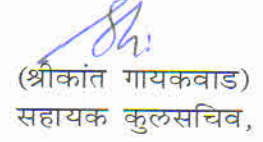 (श्रीकांत गायकवाड)
सहायक कुलसचिव,